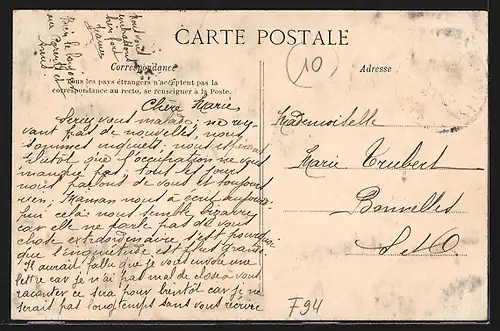 CARTE POSTALE
Correspondance
Tous les pays étrangers n'acceptent pas la
correspondance au recto, se renseigner à la Poste.
Adresse
10
Chère Marie
Seriez vous malade, ne re-
vant pas de nouvelles, nous
sommes inquiets; nous espérons
plutot que l'occupation ne vous
manque pas, tout les jours
nous parlons de vous et toujours
rien, Maman nous à écrit aujourd
hui cela nous semble bizarre
car elle ne parle pas de vous
chose extraordinaire c'est pourquoi
que l'inquiétude est plus grande.
Il aurait fallu que je vous envoie une
lettre car j'ai pas mal de choses à vous
raconter ce sera pour bientôt car je ne
serait pas longtemps sans vous récrire
Mademoiselle
Marie Trubert
Bonnelles
S et O.
F94